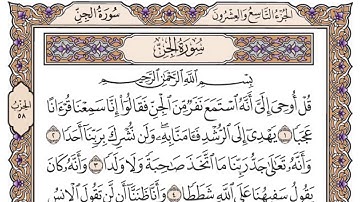 الجزء التاسع والعشرون
سورة الجن
سورة الجن
بسم الله الرحمن الرحيم
قل أوحي إلي أنه استمع نفر من الجن فقالوا إنا سمعنا قرءانا
عجبا ١ يهدي إلى الرشد فءامنا به ولن نشرك بربنا أحدا ٢
الحزب
٥٨
وأنه تعلى جد ربنا ما اتخذ صحبة ولا ولدا ٣ وأنه كان
يقول سفيهنا على الله شططا ٤ وأنا ظننا أن لن تقول الإنس